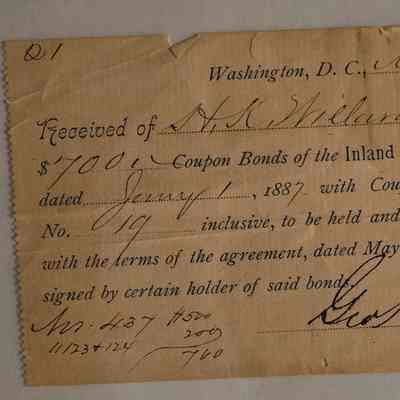 Q1
Washington, D. C.,
Received of H. K. Willar
$700 Coupon Bonds of the Inland
dated Jany 1, 1887 with Cou
No. 19 inclusive, to be held and
with the terms of the agreement, dated May
signed by certain holder of said bonds.
Geo
Nr. 437 #500
" 123+124 200
700